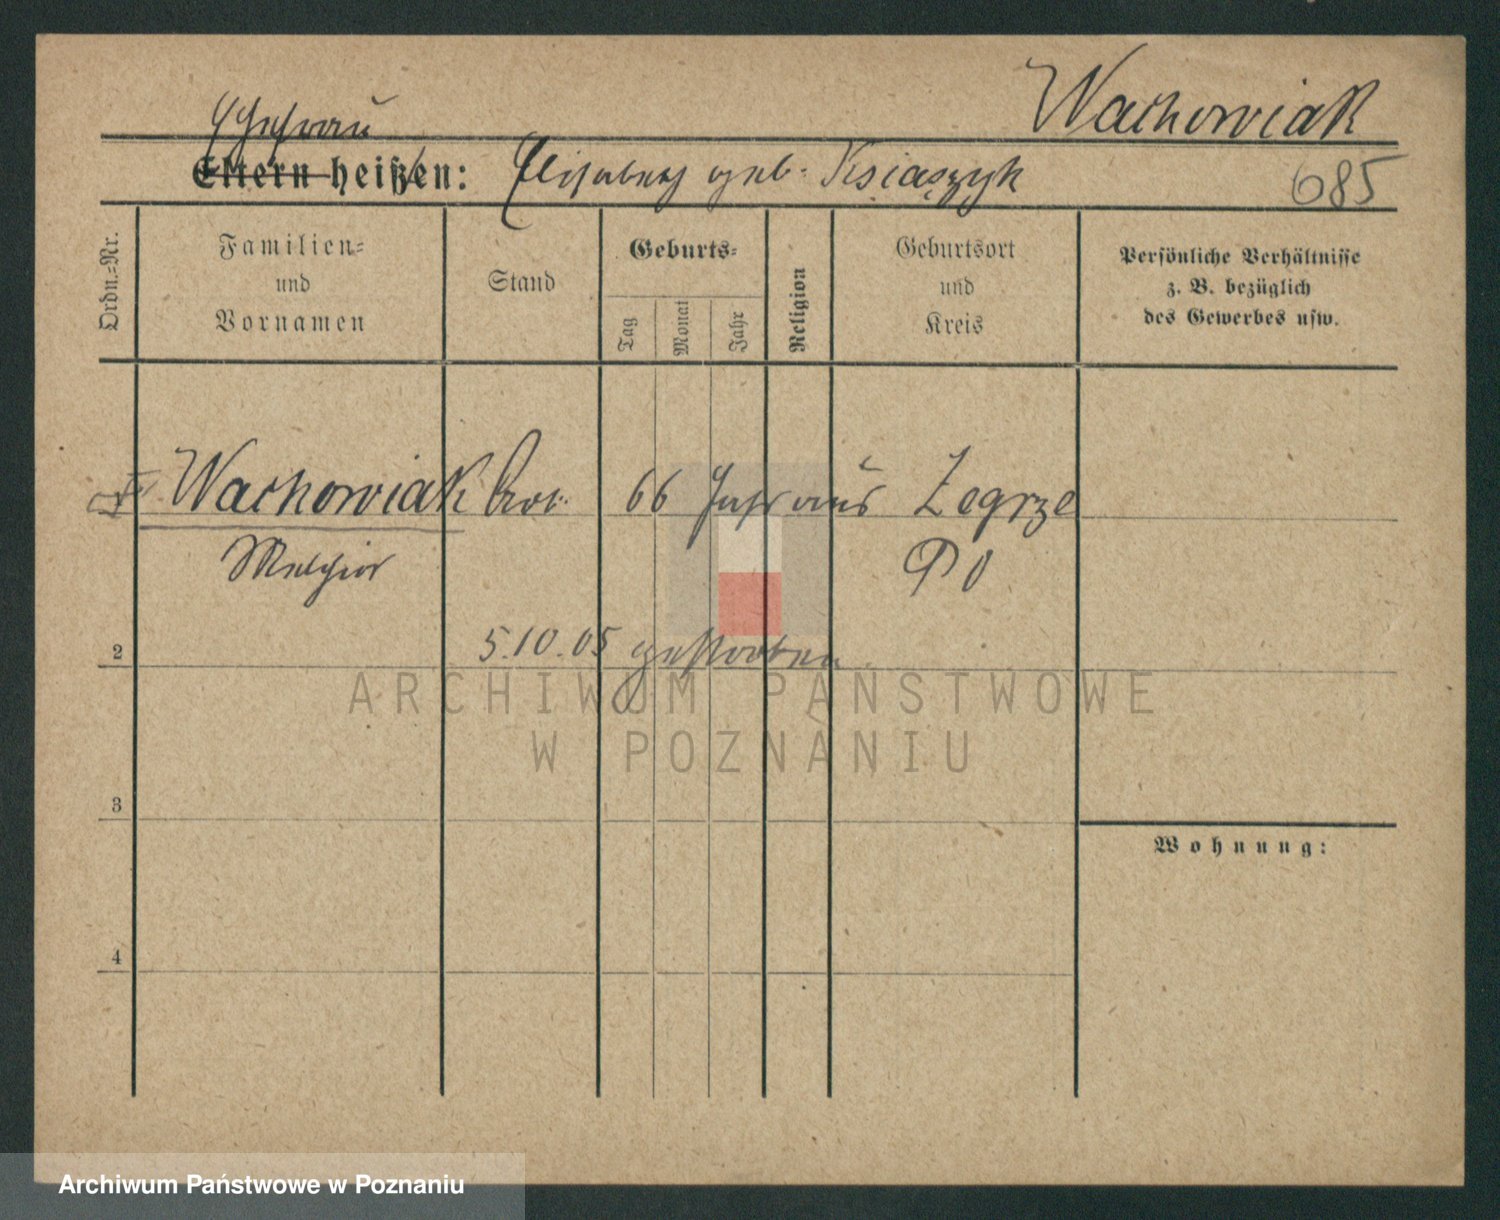 Wachowiak
Ehefrau
Eltern heißen: Elisabeth geb. Książczyk
685
Ordn.-Nr.
Familien-
und
Vornamen
Stand
Geburts-
Tag
Monat
Jahr
Religion
Geburtsort
und
Kreis
Persönliche Verhältnisse
z. B. bezüglich
des Gewerbes usw.
Wachowiak Arb. 66 Jahr aus Zegrze
Melchior PO
2
5.10.05 gestorben.
ARCHIWUM PAŃSTWOWE
W POZNANIU
3
Wohnung:
4
Archiwum Państwowe w Poznaniu